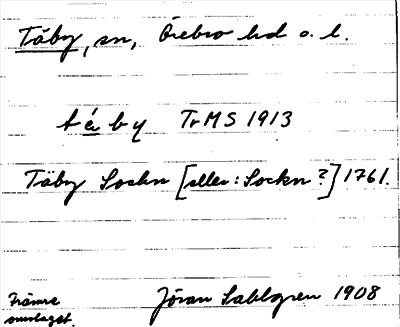 Täby, sn, Örebro hd o. l.
té̱by TrMS 1913
Täby Sockn [eller: Sockn?] 1761.
Främre omslaget.
Jöran Sahlgren 1908